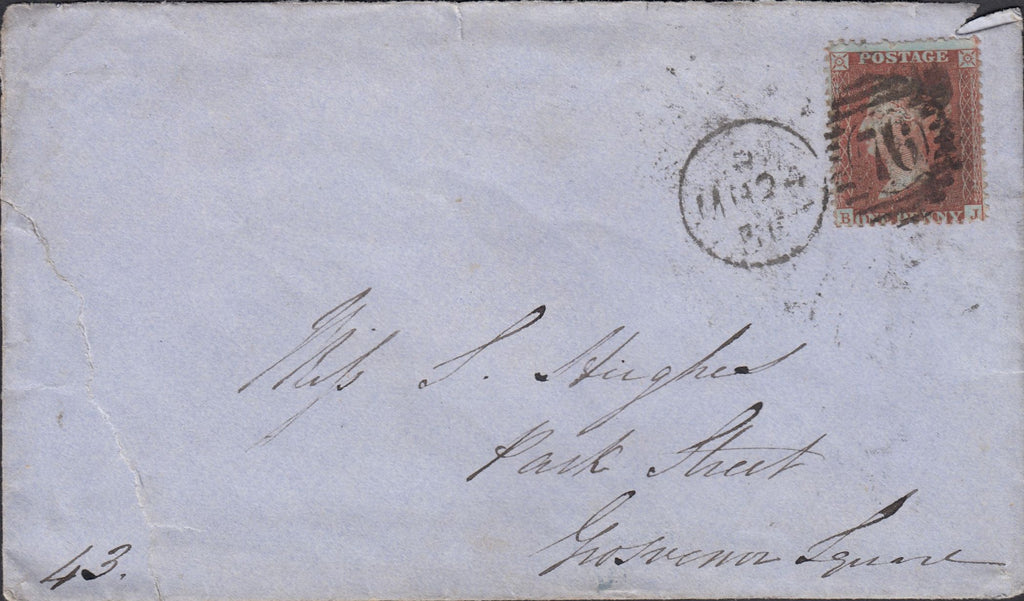 POSTAGE
76
B ONE PENNY J
Miss S. Hughes
Park Street
Grosvenor Square
43.